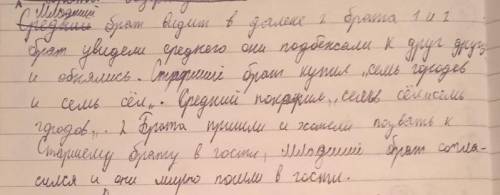 Младший
Средний брат видит в далеке 2 брата 1 и 2
брат увидели среднего они подбежали к друг другу
и обнялись. Старший брат купил „семь городов
и семь сёл„. Средний покорил „семь сёл и семь
городов„. 2 Брата пришли и хотели позвать к
Старшему брату в гости, Младший брат согла-
сился и они мирно пошли в гости.